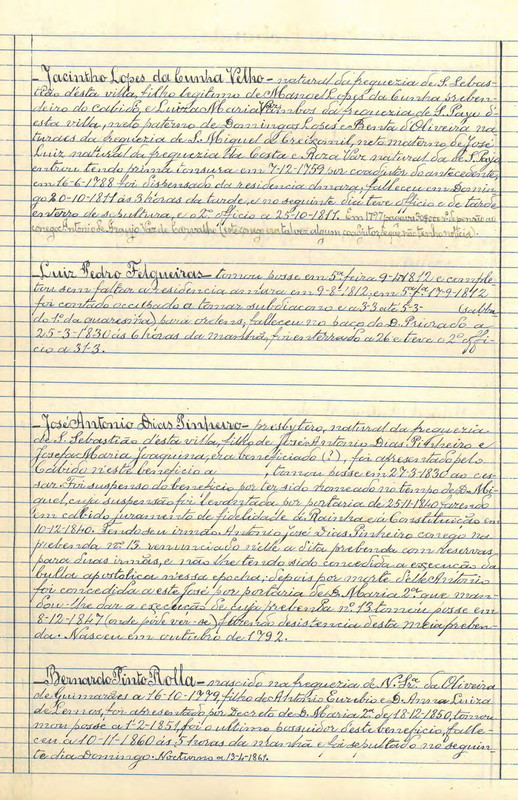 - Jacintho Lopes da Cunha Velho - natural da freguezia de S. Sebas-
tião d'esta villa, filho legitimo de Manoel Lopes da Cunha prebem-
deiro do cabido, e Luiza Maria Vaz, ambos da freguezia de S. Payo d'
esta villa, neto paterno de Domingos Lopes e Benta d'Oliveira na-
turaes da freguezia de S. Miguel de Creixomil, neto materno de José
Luiz natural da freguezia da Costa e Roza Vaz natural da de S. Payo
entrou tendo prima tonsura em 7-12-1759 por coadjutor do antecedente,
em 16-6-1788 foi dispensado da residencia amarga, falleceu em Domin-
go 20-10-1811 ás 3 horas da tarde, e no seguinte dia teve officio e de tarde
enterro de sepultura, e o 2º officio a 25-10-1811. Em 1797 pagava de pensão ao
conego Antonio de Araujo Vaz de Carvalho (este conego era talvez algum coadjutor de que não tenho noticia).
Luiz Pedro Felgueiras - tomou posse em 5ª feira 9-4-1812 e comple-
tou sem faltar a residencia amara em 9-8-1812, em 5ª fª 17-9-1812
foi contado occulpado a tomar subdiacono e a 3-3 até 5-3- (sabba-
do 1º da quaresma) para ordens, falleceu no paço do D. Priorado a
25-3-1830 ás 6 horas da manhã, foi enterrado a 26 e teve o 2º offi-
cio a 31-3.
- José Antonio Dias Pinheiro - presbytero, natural da freguezia
de S. Sebastião d'esta villa, filho de José Antonio Dias Pinheiro e
Josefa Maria Joaquina, era beneficiado (?), foi apresentado pelo
Cabido n'este beneficio a , tomou posse em 27-3-1830 ao ces-
sar. Foi suspenso do beneficio por ter sido nomeado no tempo de D. Mi-
guel, cuja suspensão foi levantada por portaria de 25-11-1840 fazendo
em cabido juramento de fidelidade á Rainha e á Constituição em
10-12-1840. Tendo seu irmão Antonio José Dias Pinheiro conego na
prebenda nº 13 renunciado n'elle a dita prebenda com reservas
para duas irmãs, e não lhe tendo sido concedida a execução da
bulla apostolica n'essa epocha, depois por morte d'elle Antonio
foi concedida a este José por portaria de D. Maria 2ª que man-
dou-lhe dar a execução de cuja prebenda nº 13 tomou posse em
8-12-1847 (onde póde ver-se) fazendo desistencia desta meia preben-
da. Nasceu em outubro de 1792.
- Bernardo Pinto Rolla - nascido na freguezia de N. Srª da Oliveira
de Guimarães a 16-10-1779, filho de Antonio Euzebio e D. Anna Luiza
de Lemos, foi apresentado por Decreto de D. Maria 2ª de 18-12-1850, tomou
mou posse a 1-2-1851, foi o ultimo possuidor deste beneficio, falle-
ceu a 10-11-1860 ás 5 horas da manhã e foi sepultado no seguin-
te dia Domingo. Nocturno a 13-4-1861.